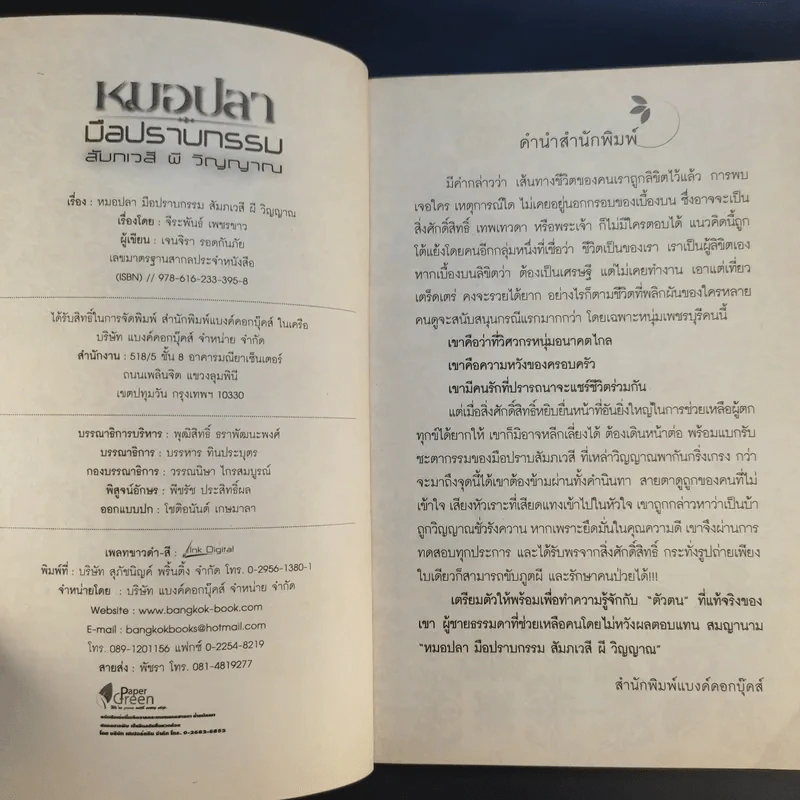 หมอปลา
มือปราบกรรม
สัมภเวสี ผี วิญญาณ
เรื่อง : หมอปลา มือปราบกรรม สัมภเวสี ผี วิญญาณ
เรื่องโดย : จีระพันธ์ เพชรขาว
ผู้เขียน : เจนจิรา รอตกันภัย
เลขมาตรฐานสากลประจำหนังสือ
(ISBN) // 978-616-233-395-8
ได้รับสิทธิ์ในการจัดพิมพ์ สำนักพิมพ์แบงค์คอกบุ๊คส์ ในเครือ
บริษัท แบงค์คอกบุ๊คส์ จำหน่าย จำกัด
สำนักงาน : 518/5 ชั้น 8 อาคารมณียาเซ็นเตอร์
ถนนเพลินจิต แขวงลุมพินี
เขตปทุมวัน กรุงเทพฯ 10330
บรรณาธิการบริหาร : พุฒิสิทธิ์ ธราพัฒนะพงศ์
บรรณาธิการ : บรรหาร ทินประบุตร
กองบรรณาธิการ : วรรณนิษา ไกรสมบูรณ์
พิสูจน์อักษร : พีชรัช ประสิทธิ์ผล
ออกแบบปก : โชติอนันต์ เกษมาลา
เพลทขาวดำ-สี : Ink Digital
พิมพ์ที่ : บริษัท สุภัชนิญค์ พริ้นติ้ง จำกัด โทร. 0-2956-1380-1
จำหน่ายโดย : บริษัท แบงค์คอกบุ๊คส์ จำหน่าย จำกัด
Website : www.bangkok-book.com
E-mail : bangkokbooks@hotmail.com
โทร. 089-1201156 แฟกซ์ 0-2254-8219
สายส่ง : พัชรา โทร. 081-4819277
Paper
Green
คำนำสำนักพิมพ์
มีคำกล่าวว่า เส้นทางชีวิตของคนเราถูกลิขิตไว้แล้ว การพบ
เจอใคร เหตุการณ์ใด ไม่เคยอยู่นอกกรอบของเบื้องบน ซึ่งอาจจะเป็น
สิ่งศักดิ์สิทธิ์ เทพเทวดา หรือพระเจ้า ก็ไม่มีใครตอบได้ แนวคิดนี้ถูก
โต้แย้งโดยคนอีกกลุ่มหนึ่งที่เชื่อว่า ชีวิตเป็นของเรา เราเป็นผู้ลิขิตเอง
หากเบื้องบนลิขิตว่า ต้องเป็นเศรษฐี แต่ไม่เคยทำงาน เอาแต่เที่ยว
เตร็ดเตร่ คงจะรวยได้ยาก อย่างไรก็ตามชีวิตที่พลิกผันของใครหลาย
คนดูจะสนับสนุนกรณีแรกมากกว่า โดยเฉพาะหนุ่มเพชรบุรีคนนี้
เขาคือว่าที่วิศวกรหนุ่มอนาคตไกล
เขาคือความหวังของครอบครัว
เขามีคนรักที่ปรารถนาจะแชร์ชีวิตร่วมกัน
แต่เมื่อสิ่งศักดิ์สิทธิ์หยิบยื่นหน้าที่อันยิ่งใหญ่ในการช่วยเหลือผู้ตก
ทุกข์ได้ยากให้ เขาก็มิอาจหลีกเลี่ยงได้ ต้องเดินหน้าต่อ พร้อมแบกรับ
ชะตากรรมของมือปราบสัมภเวสี ที่เหล่าวิญญาณพากันกริ่งเกรง กว่า
จะมาถึงจุดนี้ได้เขาต้องข้ามผ่านทั้งคำนินทา สายตาดูถูกของคนที่ไม่
เข้าใจ เสียงหัวเราะที่เสียดแทงเข้าไปในหัวใจ เขาถูกกล่าวหาว่าเป็นบ้า
ถูกวิญญาณชั่วรังควาน หากเพราะยึดมั่นในคุณความดี เขาจึงผ่านการ
ทดสอบทุกประการ และได้รับพรจากสิ่งศักดิ์สิทธิ์ กระทั่งรูปถ่ายเพียง
ใบเดียวก็สามารถขับภูตผี และรักษาคนป่วยได้!!!
เตรียมตัวให้พร้อมเพื่อทำความรู้จักกับ “ตัวตน” ที่แท้จริงของ
เขา ผู้ชายธรรมดาที่ช่วยเหลือคนโดยไม่หวังผลตอบแทน สมญานาม
“หมอปลา มือปราบกรรม สัมภเวสี ผี วิญญาณ”
สำนักพิมพ์แบงค์คอกบุ๊คส์